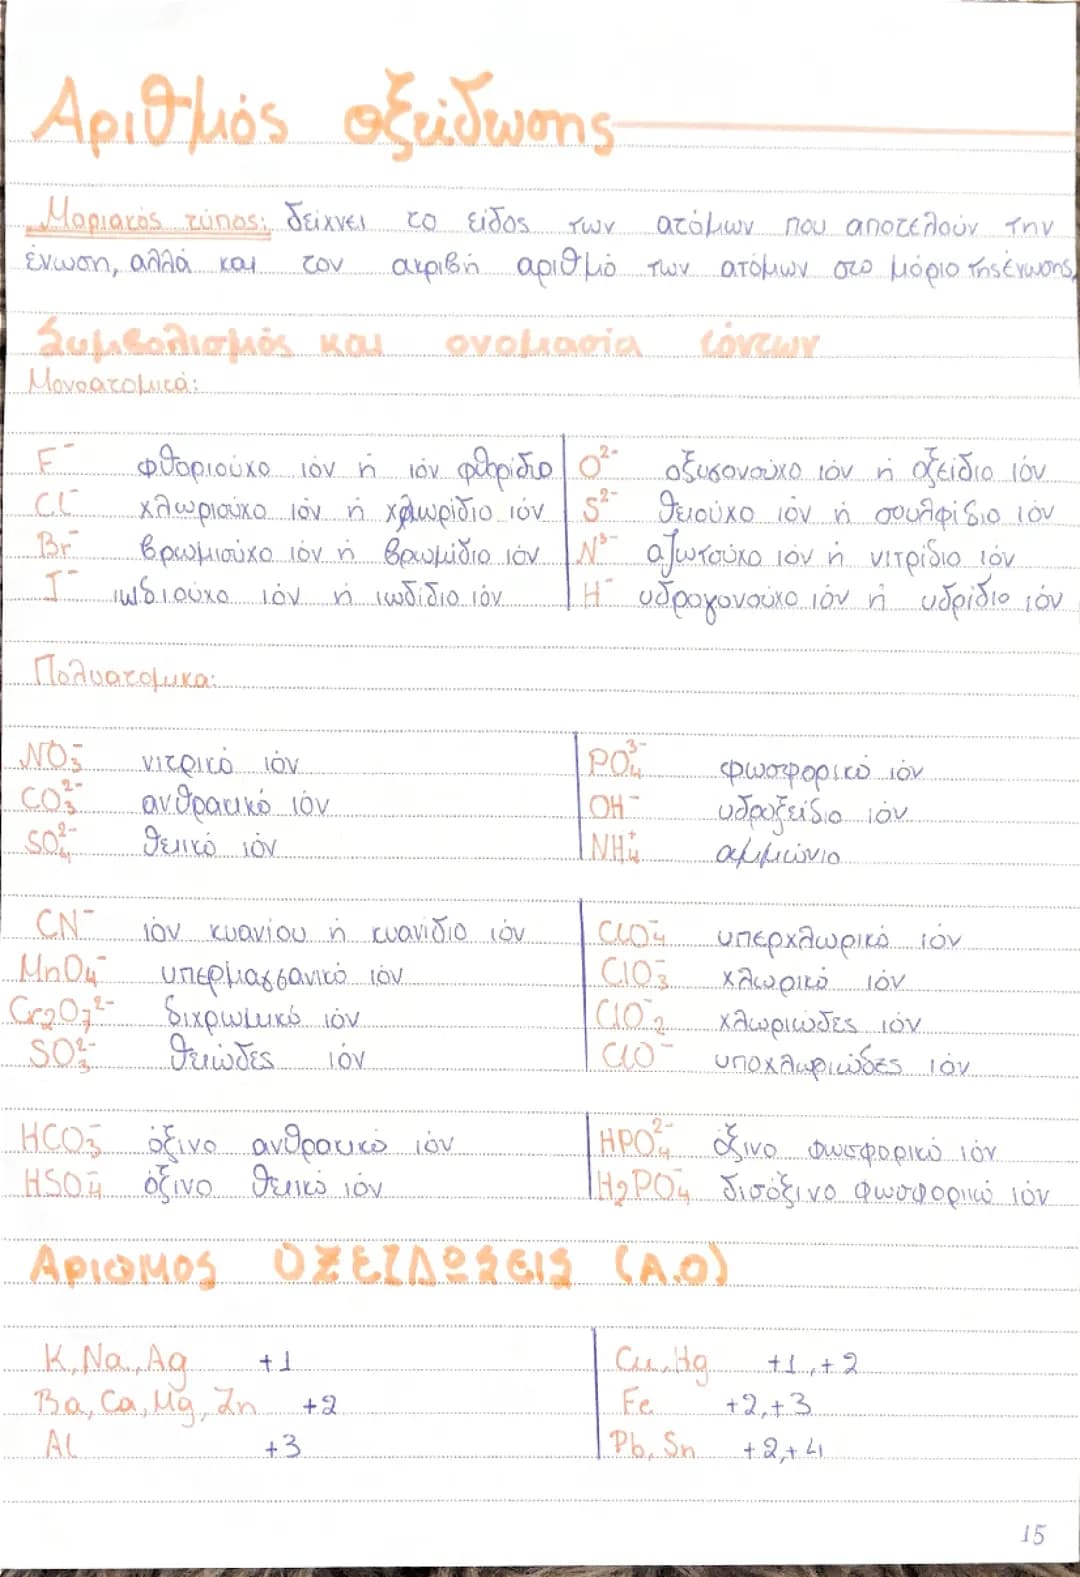 Αριθμός οξείδωσης
Μοριακός τύπος: δείχνει το είδος των ατόμων που αποτελούν την
ένωση, αλλά και τον ακριβή αριθμό των ατόμων στο μόριο της ένωσης.
Συμβολισμός και ονομασία ιόντων
Μονοατομικά:
F⁻ φθοριούχο ιόν ή ιόν φθορίδιο
O²⁻ οξυγονούχο ιόν ή οξείδιο ιόν
Cl⁻ χλωριούχο ιόν ή χλωρίδιο ιόν
S²⁻ θειούχο ιόν ή σουλφίδιο ιόν
Br⁻ βρωμιούχο ιόν ή βρωμίδιο ιόν
N³⁻ αζωτούχο ιόν ή νιτρίδιο ιόν
I⁻ ιωδιούχο ιόν ή ιωδίδιο ιόν
H⁻ υδρογονούχο ιόν ή υδρίδιο ιόν
Πολυατομικα:
NO₃⁻ νιτρικό ιόν
PO₄³⁻ φωσφορικό ιόν
CO₃²⁻ ανθρακικό ιόν
OH⁻ υδροξείδιο ιόν
SO₄²⁻ θειικό ιόν
NH₄⁺ αμμώνιο
CN⁻ ιόν κυανίου ή κυανίδιο ιόν
ClO₄⁻ υπερχλωρικό ιόν
MnO₄⁻ υπερμαγγανικό ιόν
ClO₃⁻ χλωρικό ιόν
Cr₂O₇²⁻ διχρωμικό ιόν
ClO₂⁻ χλωριώδες ιόν
SO₃²⁻ θειώδες ιόν
ClO⁻ υποχλωριώδες ιόν
HCO₃⁻ όξινο ανθρακικό ιόν
HPO₄²⁻ όξινο φωσφορικό ιόν
HSO₄⁻ όξινο θειικό ιόν
H₂PO₄⁻ δισόξινο φωσφορικό ιόν
Αριθμος ΟΞΕΙΔΩΣΕΙΣ (Α.Ο)
K, Na, Ag +1
Cu, Hg +1, +2
Ba, Ca, Mg, Zn +2
Fe +2, +3
Al +3
Pb, Sn +2, +4
15